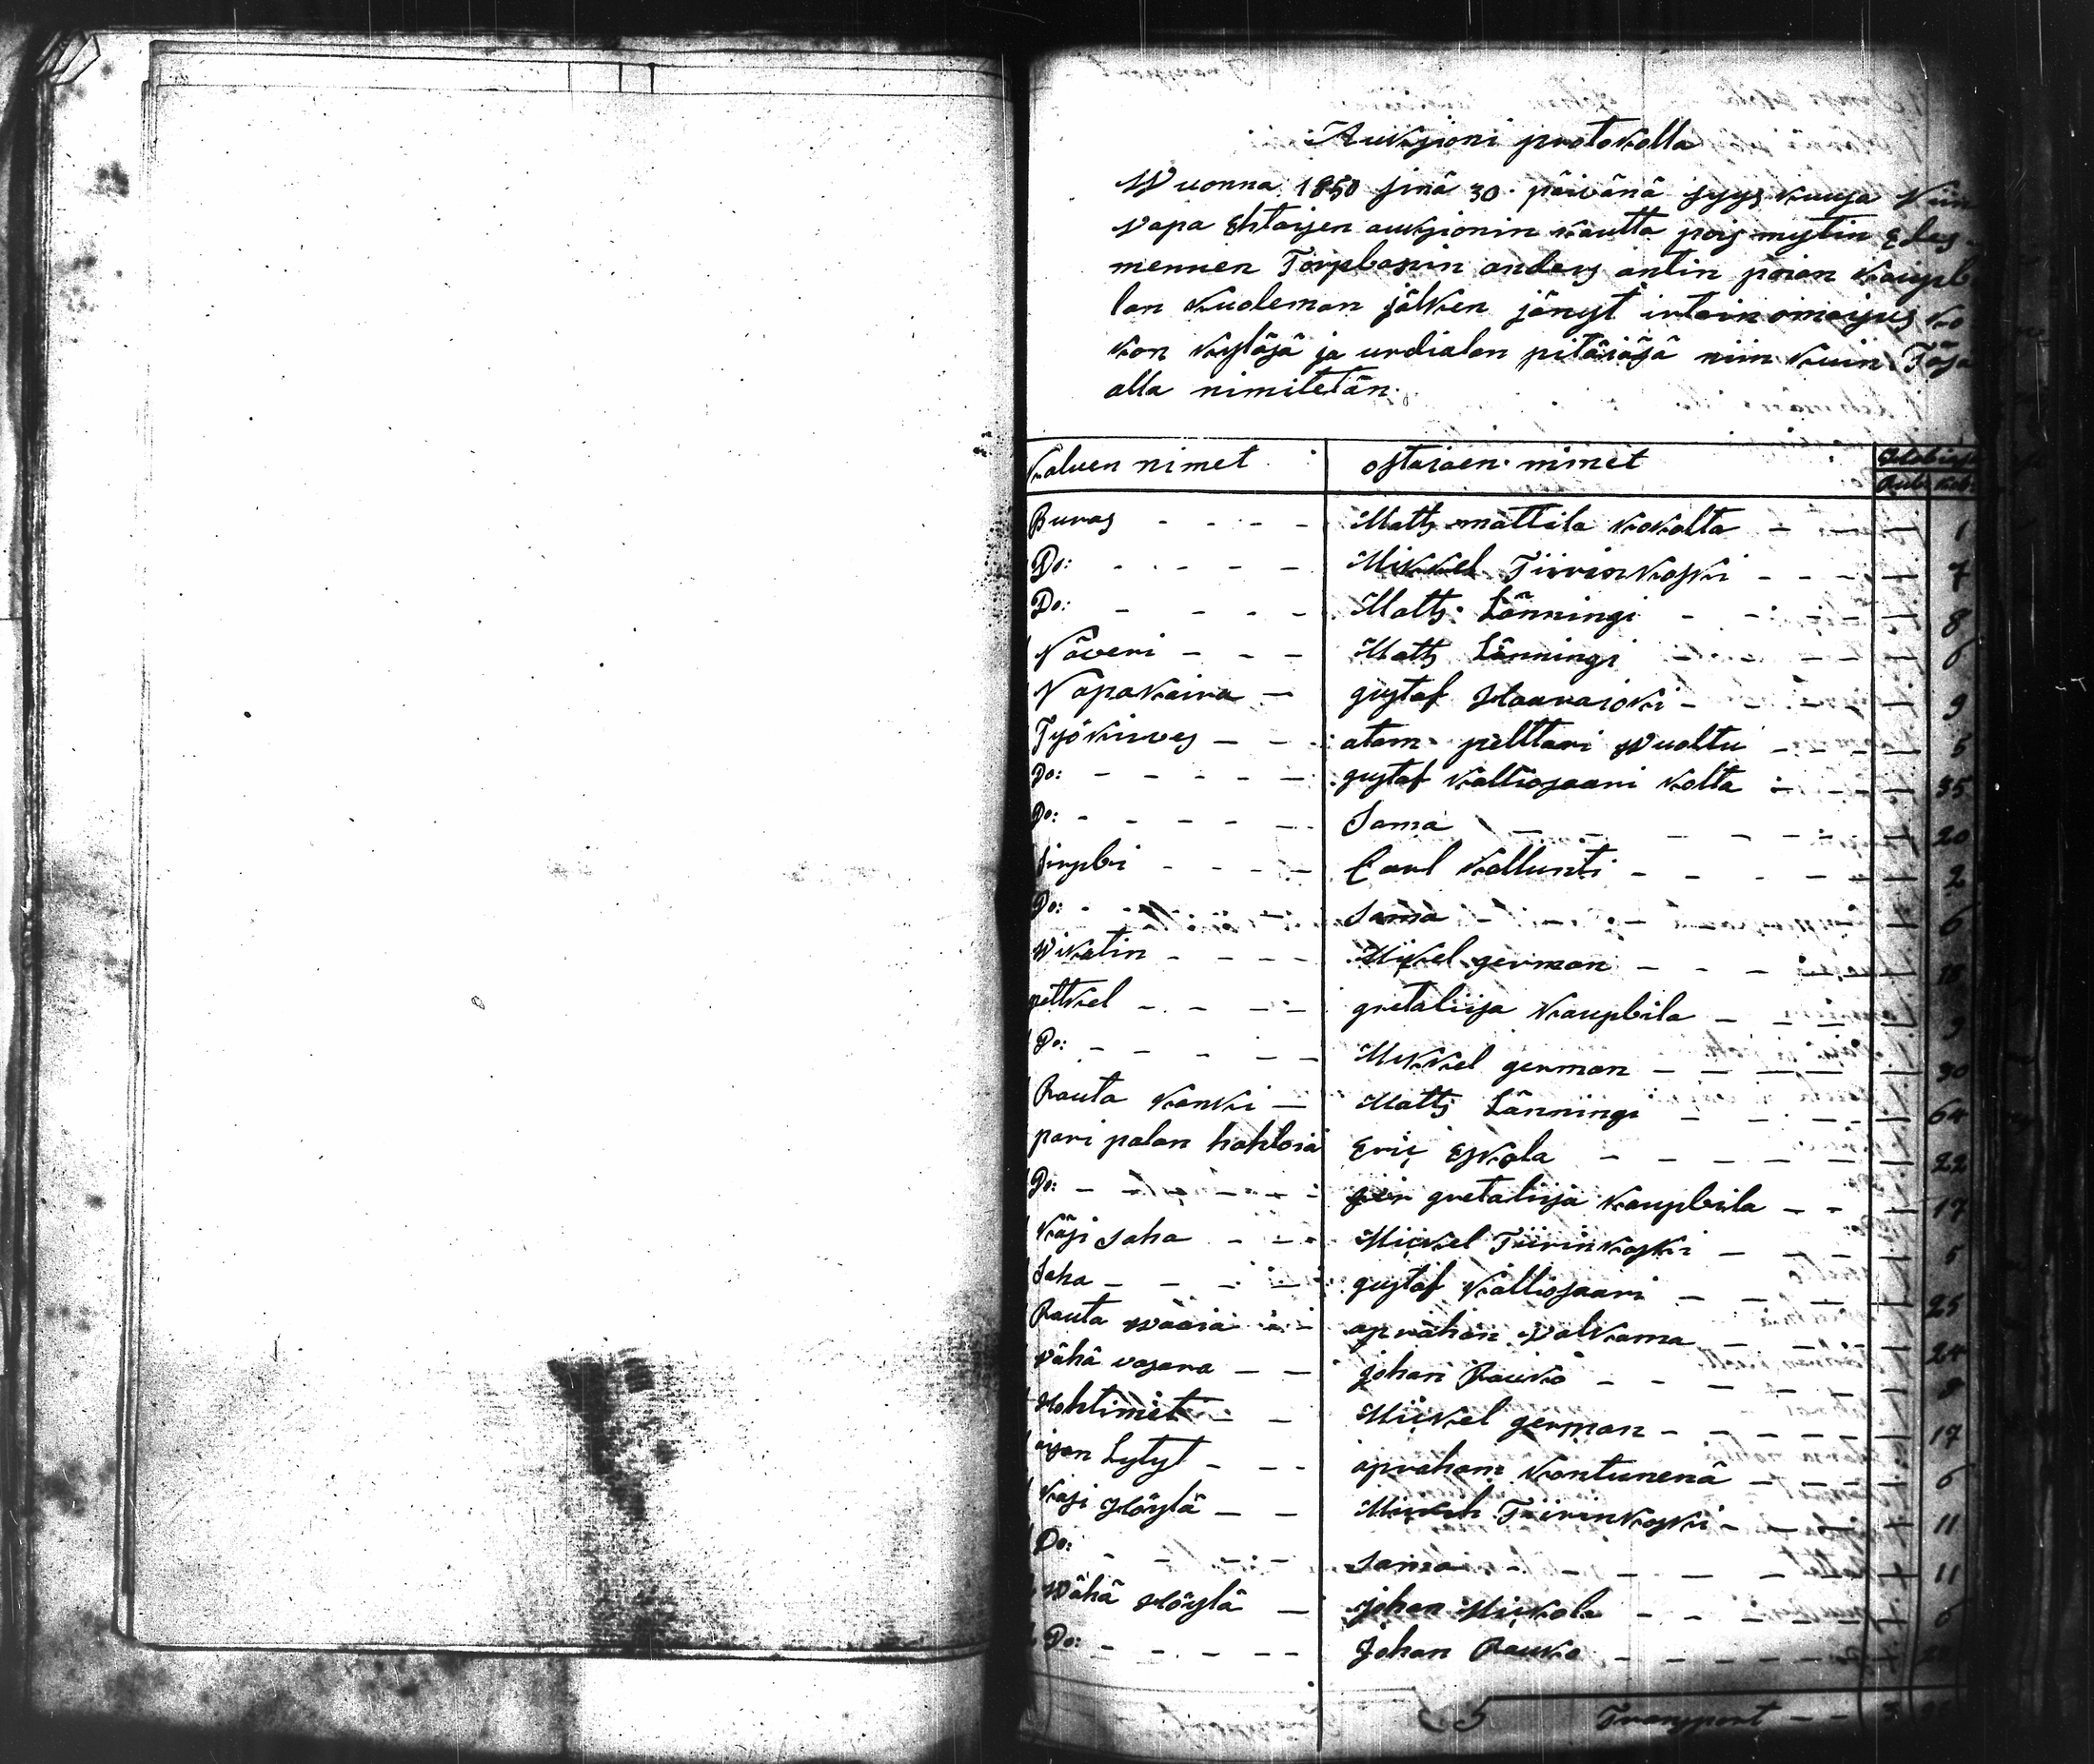 Aukjioni protokolla
Wuonna 1850 sinä 30. päivänä syys kuusa Niin
vapa Ehtoisen aukjionin kautta pois mytin Edes-
mennen Torpbarin anders antin poian kaupb
lan kuoleman jälken jänyt irtain omaisus ko
kon kyläsä ja urdialan pitäiäsä niin kuin Täsä
alla nimitetän.
kaluen nimet ostaiaen nimet
Rub. kob.
Buras - - - - Matts mattila kokolta - - - 1
Do: - - - - - Mikkel Tiirinkoski - - - 7
Do: - - - - Matts Länningi - - - - 8
Näveri - - - Matts Länningi - - - - 6
Napakaira - gustaf Haaraioki - - - - 9
Työkirves - - atam pelttari Wuoltu - - - - 5
Do: - - - - - gustaf kalliosaari kolta - - - 35
Do: - - - - - Sama - - - - - 20
Sirpbi - - - - Carl kallunti - - - - - 2
Do: - - - - Sama - - - - 6
Wikatin - - - - Mikel german - - - - 18
pettkel - - - - gretaliisa kaupbila - - - - 9
Do: - - - - - Mikkel german - - - - 30
Rauta kanki - Matts Länningi - - - - 64
pari palan hahloia Eric Eskola - - - - - 22
Do: - - - - - gretaliisa kaupbila - - 17
käsi saha - - - Mickel Tiirinkoski - - - 5
Saha - - - - - gustaf kalliosaari - - - 25
Rauta waaia - - aprahan walkama - - - - 24
vähä vasara - - johan Rauko - - - - - 8
Hohtimet - - Mickel german - - - - - 17
oison Lytyt - - - apraham kantunenä - - - - 6
käsi Höylä - - Tiirinkoski - - - 11
Do: - - - - sama - - - - - 11
Wähä Höylä - johan Mickola - - - - 6
Do: - - - - - Johan Rauko - - - - -
5 Transport - -